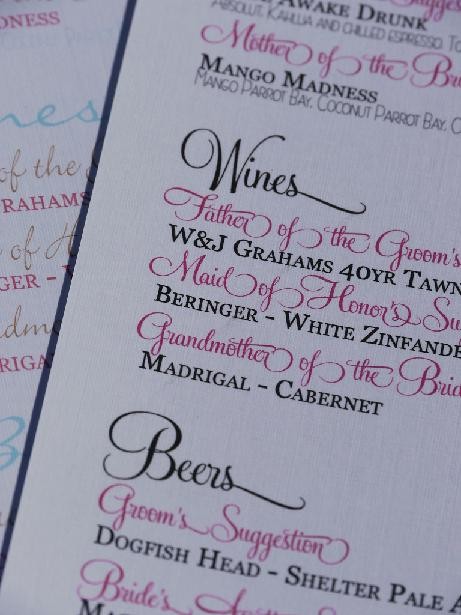 Awake Drunk
Absolut, Kahlua and chilled espresso. To
Mother of the Bri
Mango Madness
Mango Parrot Bay, Coconut Parrot Bay, C
Wines
Father of the Groom's
W&J Grahams 40yr Tawn
Maid of Honor's Su
Beringer - White Zinfande
Grandmother of the Brid
Madrigal - Cabernet
Beers
Groom's Suggestion
Dogfish Head - Shelter Pale A
Bride's
dness
nes
of the
rahams
of H
ger -
dm
riga
B